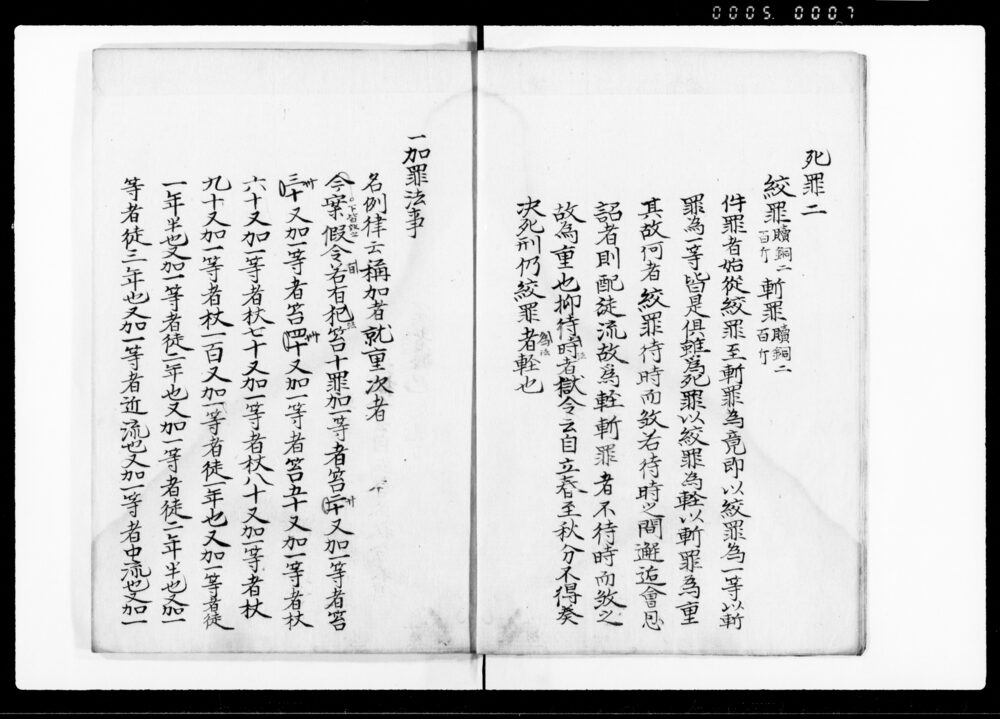 0005 0007
死罪二
絞罪贖銅二百斤 斬罪贖銅二百斤
件罪者始從絞罪至斬罪為竟即以絞罪為一等以斬
罪為一等皆是俱雖為死罪以絞罪為輊以斬罪為重
其故何者絞罪待時而煞若待時之間邂逅會恩
詔者則配徒流故為輊斬罪者不待時而煞之
故為重也抑待時者獄令云自立春至秋分不得奏
决死刑仍絞罪者輊也
一加罪法事
名例律云稱加者就重次者
今案假令若有犯笞十罪加一等者笞二十又加一等者笞
三十又加一等者笞四十又加一等者笞五十又加一等者杖
六十又加一等者杖七十又加一等者杖八十又加一等者杖
九十又加一等者杖一百又加一等者徒一年也又加一等者徒
一年半也又加一等者徒二年也又加一等者徒二年半也又加一
等者徒三年也又加一等者近流也又加一等者中流也又加一